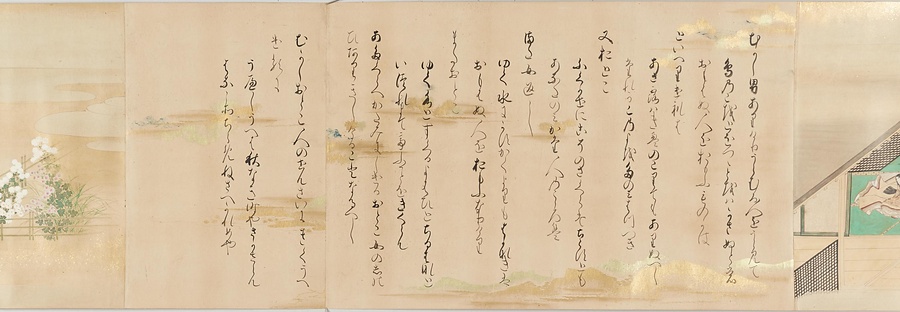 むかし男ありけりうらむる人をうらみて
鳥のこを十つゝ十はかさぬとも
おもはぬ人をおもふものかは
といへりけれは
あさ露はきえのこりてもありぬへし
たれかこの世をたのみはつへき
又おとこ
ふく風にこそのさくらはちらすとも
あなたのみかた人の心は
又女返し
ゆく水にかすかくよりもはかなきは
おもはぬ人をおもふなりけり
又おとこ
ゆく水とすくるよはひとちる花と
いつれまててふことをきくらん
あたくらへかたみにしけるおとこ女のしの
ひありきしけることなるへし
むかしおとこ人のせんさいにきくうへ
けるに
うへしうへは秋なき時やさかさらん
はなこそちらめねさへかれめや